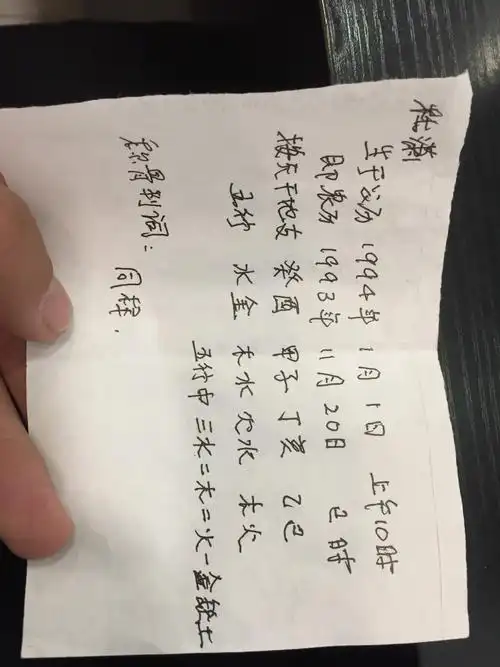 杜潇
生于公历 1994年 1月 1日 上午10时
即农历 1993年 11月 20日 巳时
按天干地支 癸酉 甲子 丁亥 乙巳
五行 水金 木水 火水 木火
五行中三水二木二火一金缺土
称骨判词：
同样.